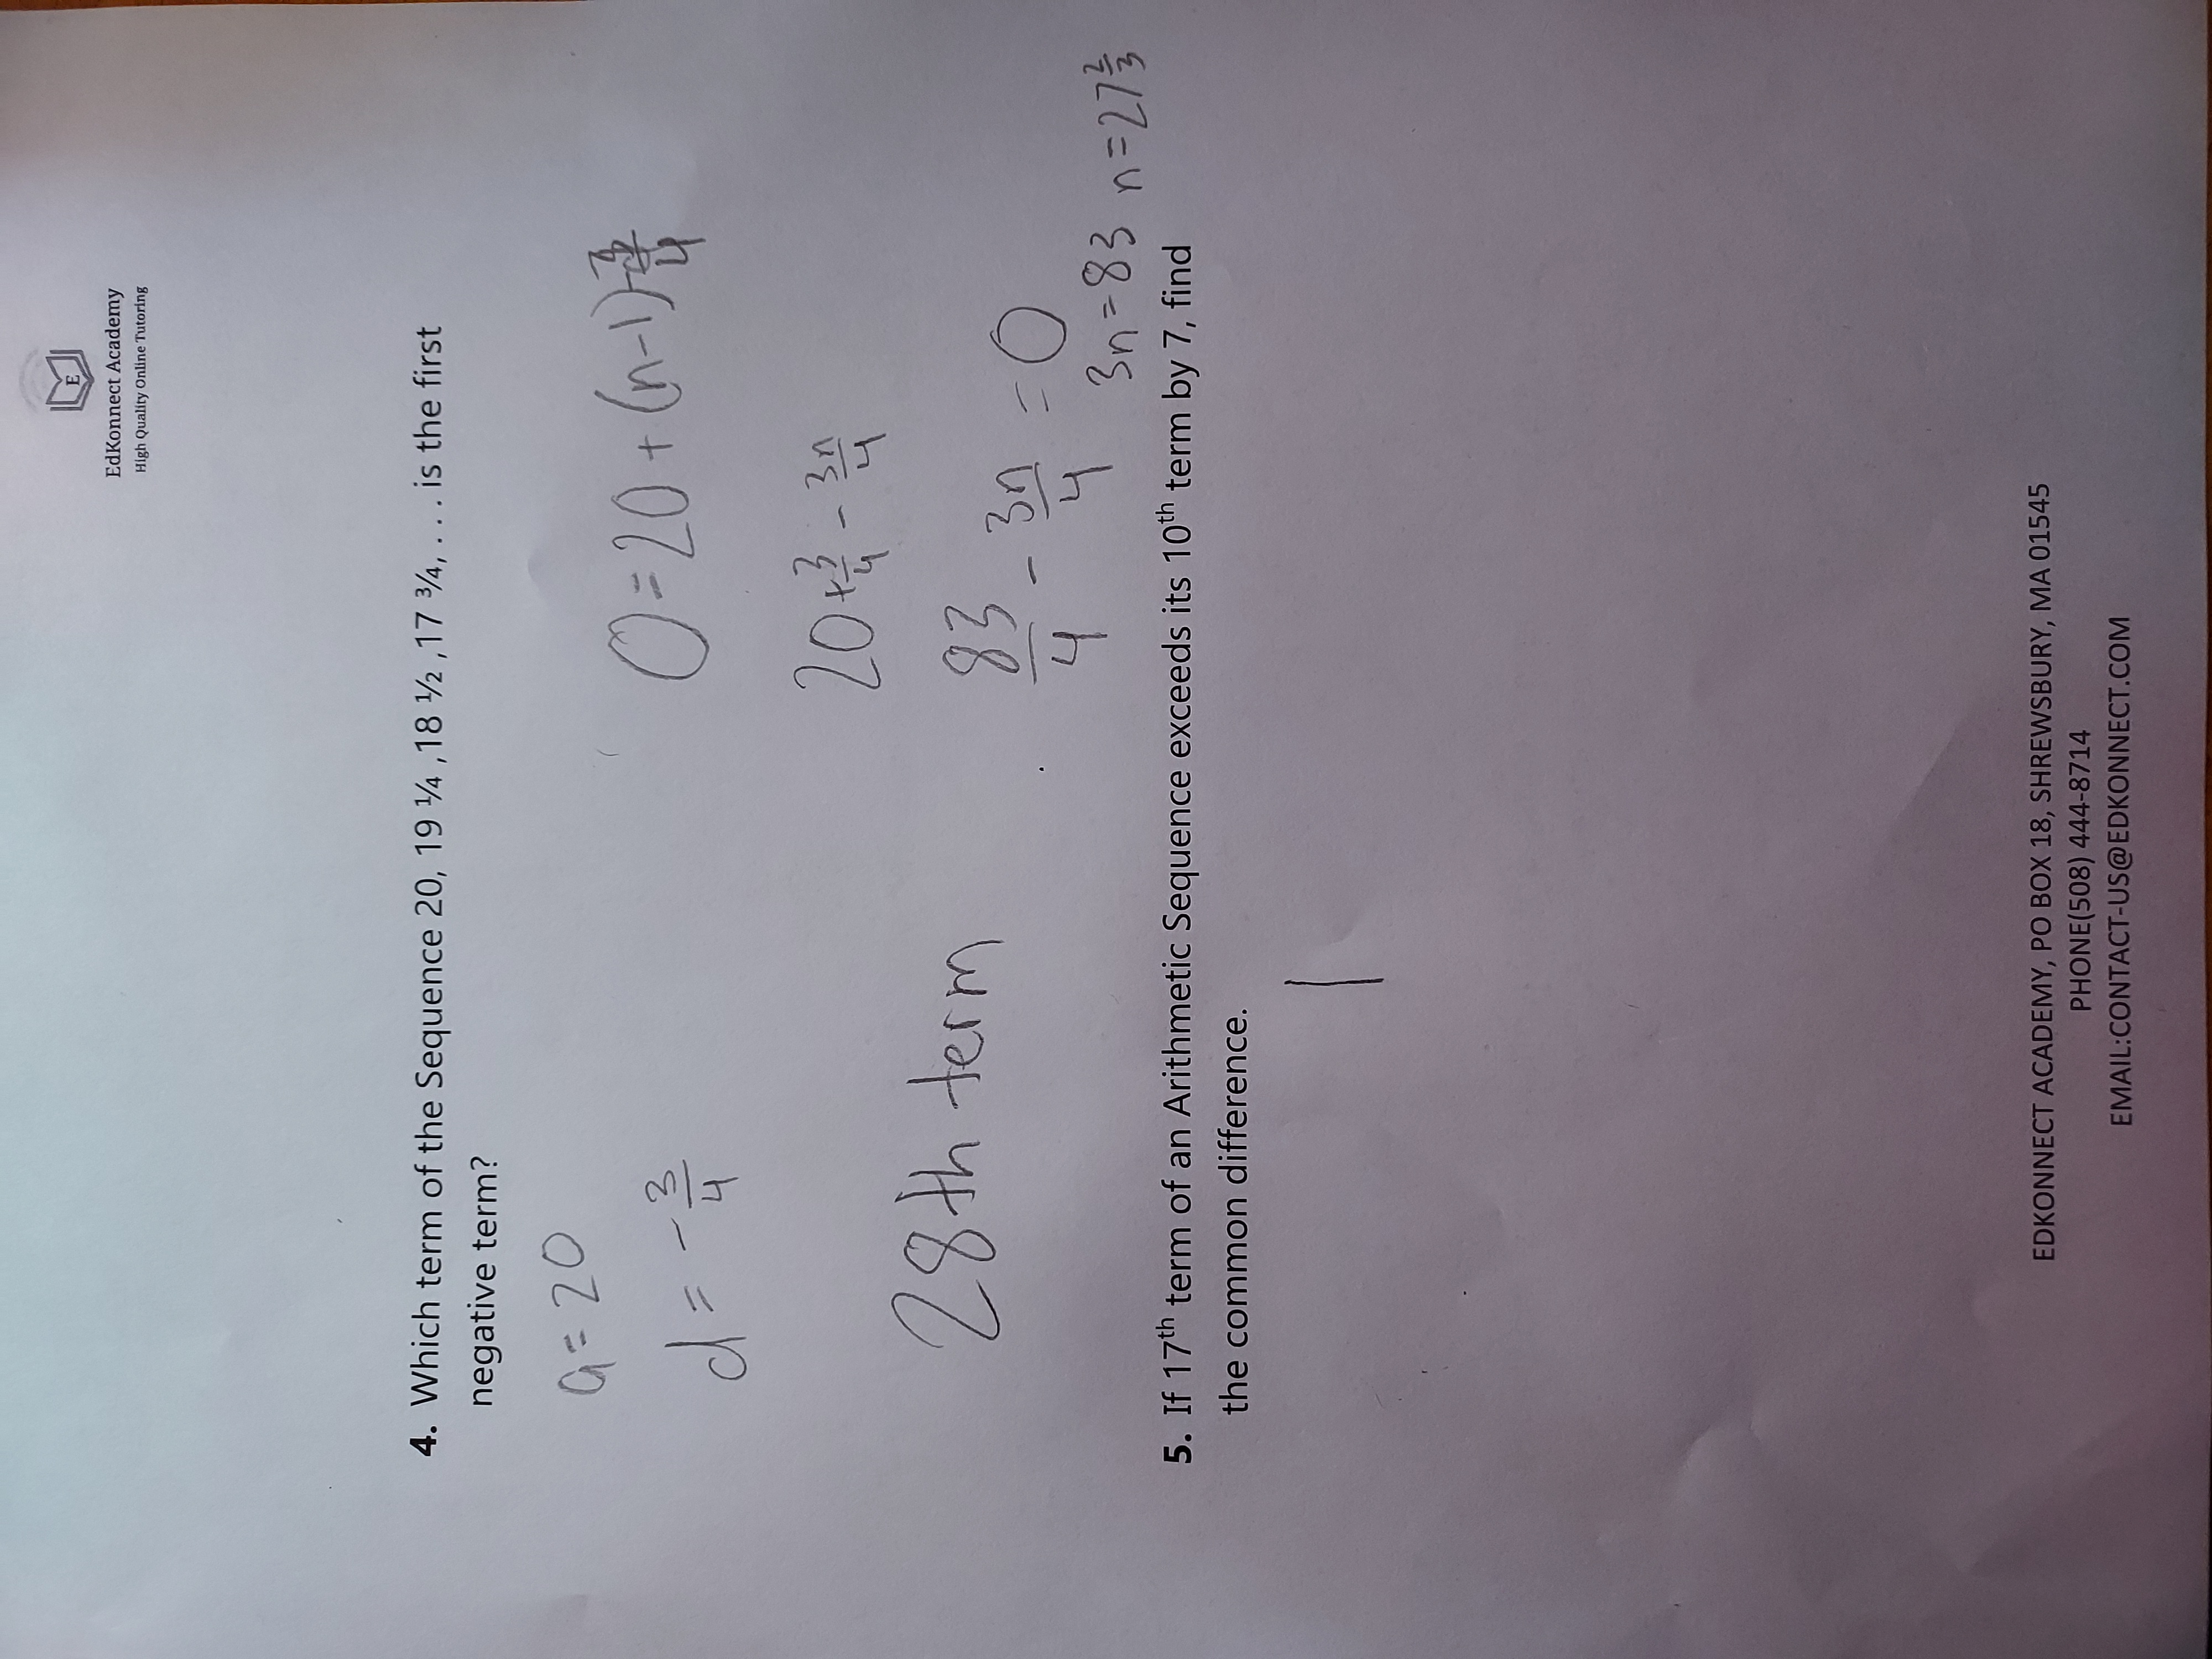 E
EdKonnect Academy
High Quality Online Tutoring
4. Which term of the Sequence 20, 19 ¼ ,18 ½ ,17 ¾, . . . is the first
negative term?
a = 20
d = - 3/4
0 = 20 + (n-1) - 3/4
20 + 3/4 - 3n/4
28th term
83/4 - 3n/4 = 0
3n = 83 n = 27 2/3
5. If 17th term of an Arithmetic Sequence exceeds its 10th term by 7, find
the common difference.
1
EDKONNECT ACADEMY, PO BOX 18, SHREWSBURY, MA 01545
PHONE(508) 444-8714
EMAIL:CONTACT-US@EDKONNECT.COM